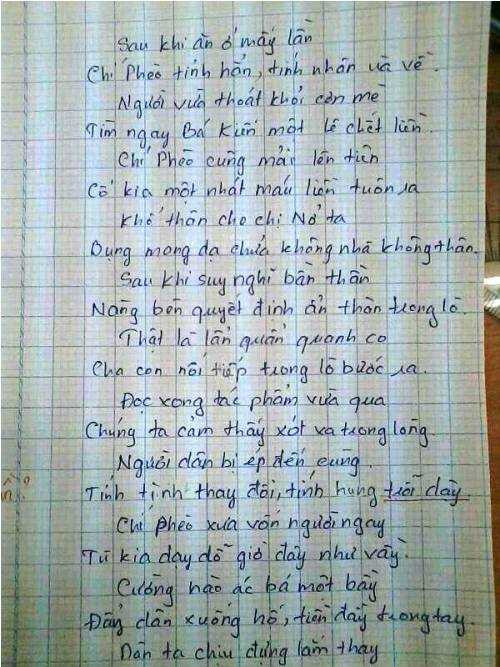 Sau khi ăn ở mấy lần
Chí Phèo tỉnh hẳn, tính nhân ùa về.
Người vừa thoát khỏi cơn mê
Tìm ngay Bá Kiến một lê chết liền.
Chí Phèo cũng mải lên tiên
Cổ kia một nhát máu liền tuôn ra
Khổ thân cho chị Nở ta
Bụng mang dạ chửa không nhà không thân.
Sau khi suy nghĩ bần thần
Nàng bèn quyết định ẩn thân trong lò.
Thật là lẩn quẩn quanh co
Cha con nối tiếp trong lò bước ra.
Đọc xong tác phẩm vừa qua
Chúng ta cảm thấy xót xa trong lòng
Người dân bị ép đến cùng.
Tính tình thay đổi, tính hung trỗi dậy
Chí Phèo xưa vốn người ngay
Tù kia dạy dỗ giờ đây như vầy.
Cường hào ác bá một bầy
Đẩy dân xuống hố, tiền đầy trong tay.
Dân ta chịu đựng lắm thay